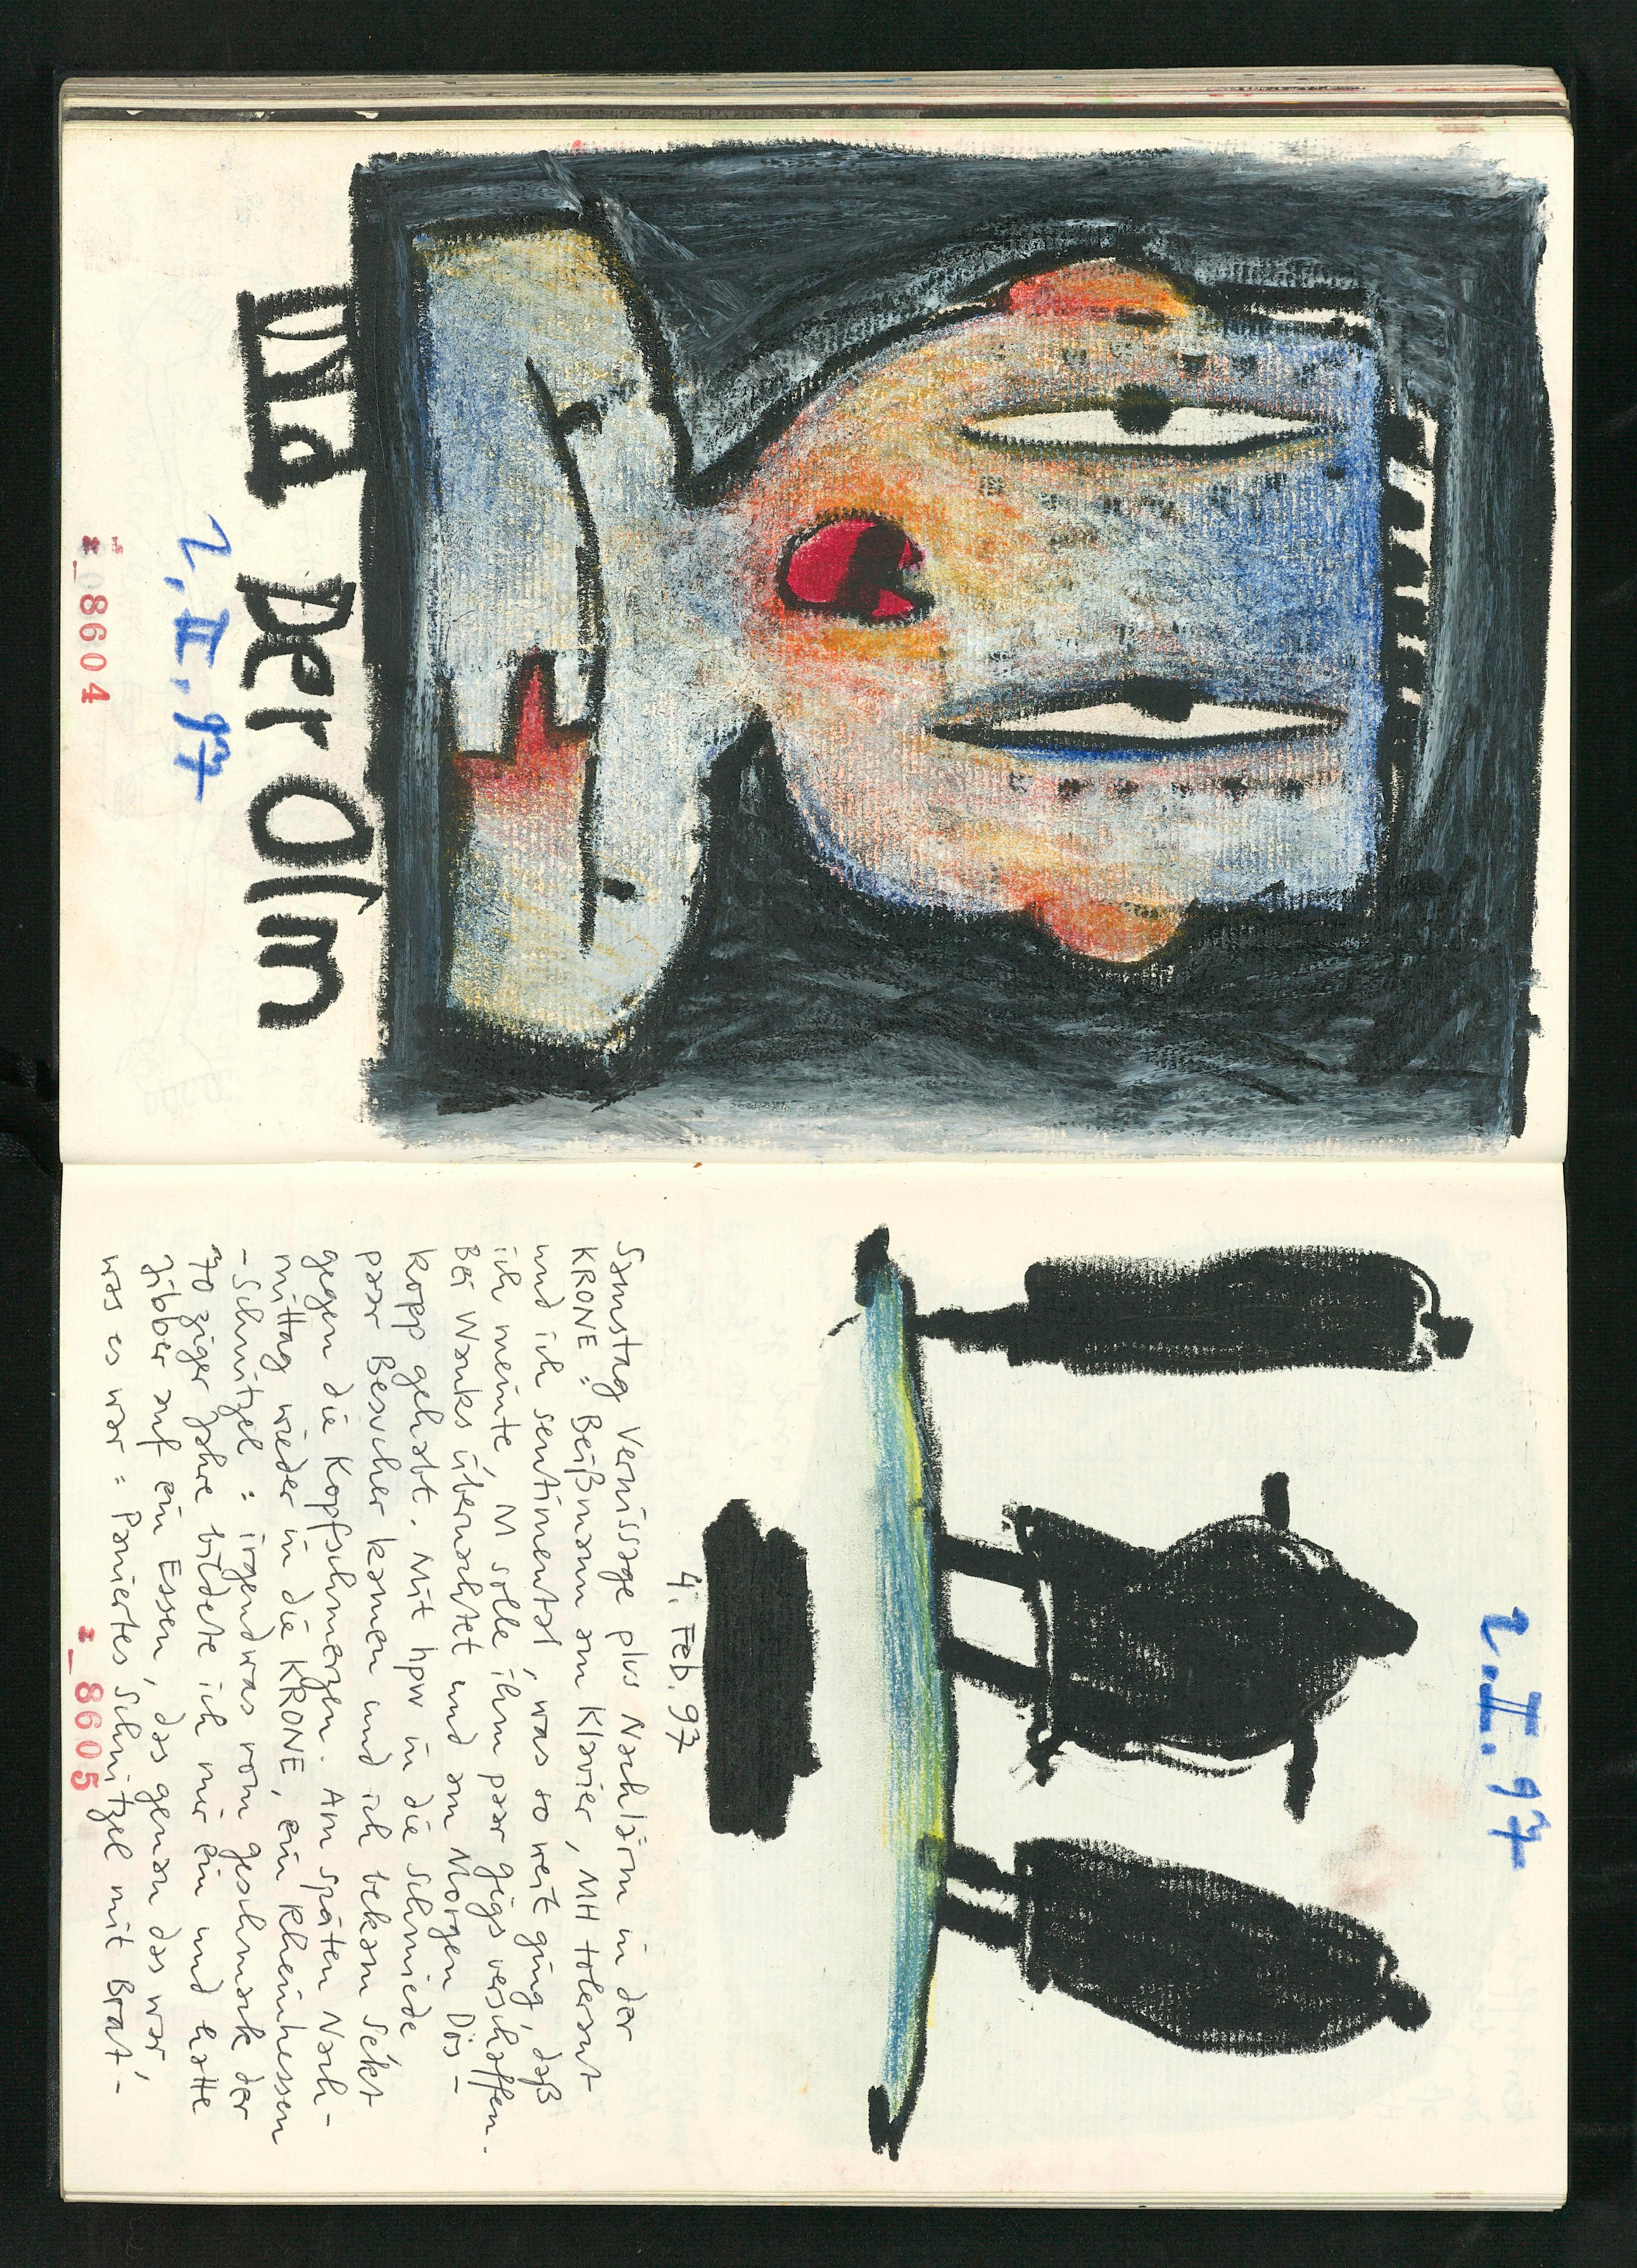 Der Olm
2.II.97
z_8604
2.II.97
4. Feb. 97
Samstag Vernissage plus Nachlärm in der
KRONE: Beißmann am Klavier, MH tolerant
und ich sentimental, was so weit ging, daß
ich meinte, M solle ihm paar gigs verschaffen.
Bei Wanks übernachtet und am Morgen Dös-
kopp gehabt. Mit hpw in die Schmiede
paar Besucher kamen und ich bekam Sekt
gegen die Kopfschmerzen. Am späten Nach-
mittag wieder in die KRONE, ein Rheinhessen
-Schnitzel: irgendwas vom Geschmack der
70ziger Jahre bildete ich mir ein und hatte
Jibber auf ein Essen, das genau das war,
was es war: Paniertes Schnitzel mit Brat-
z_8605